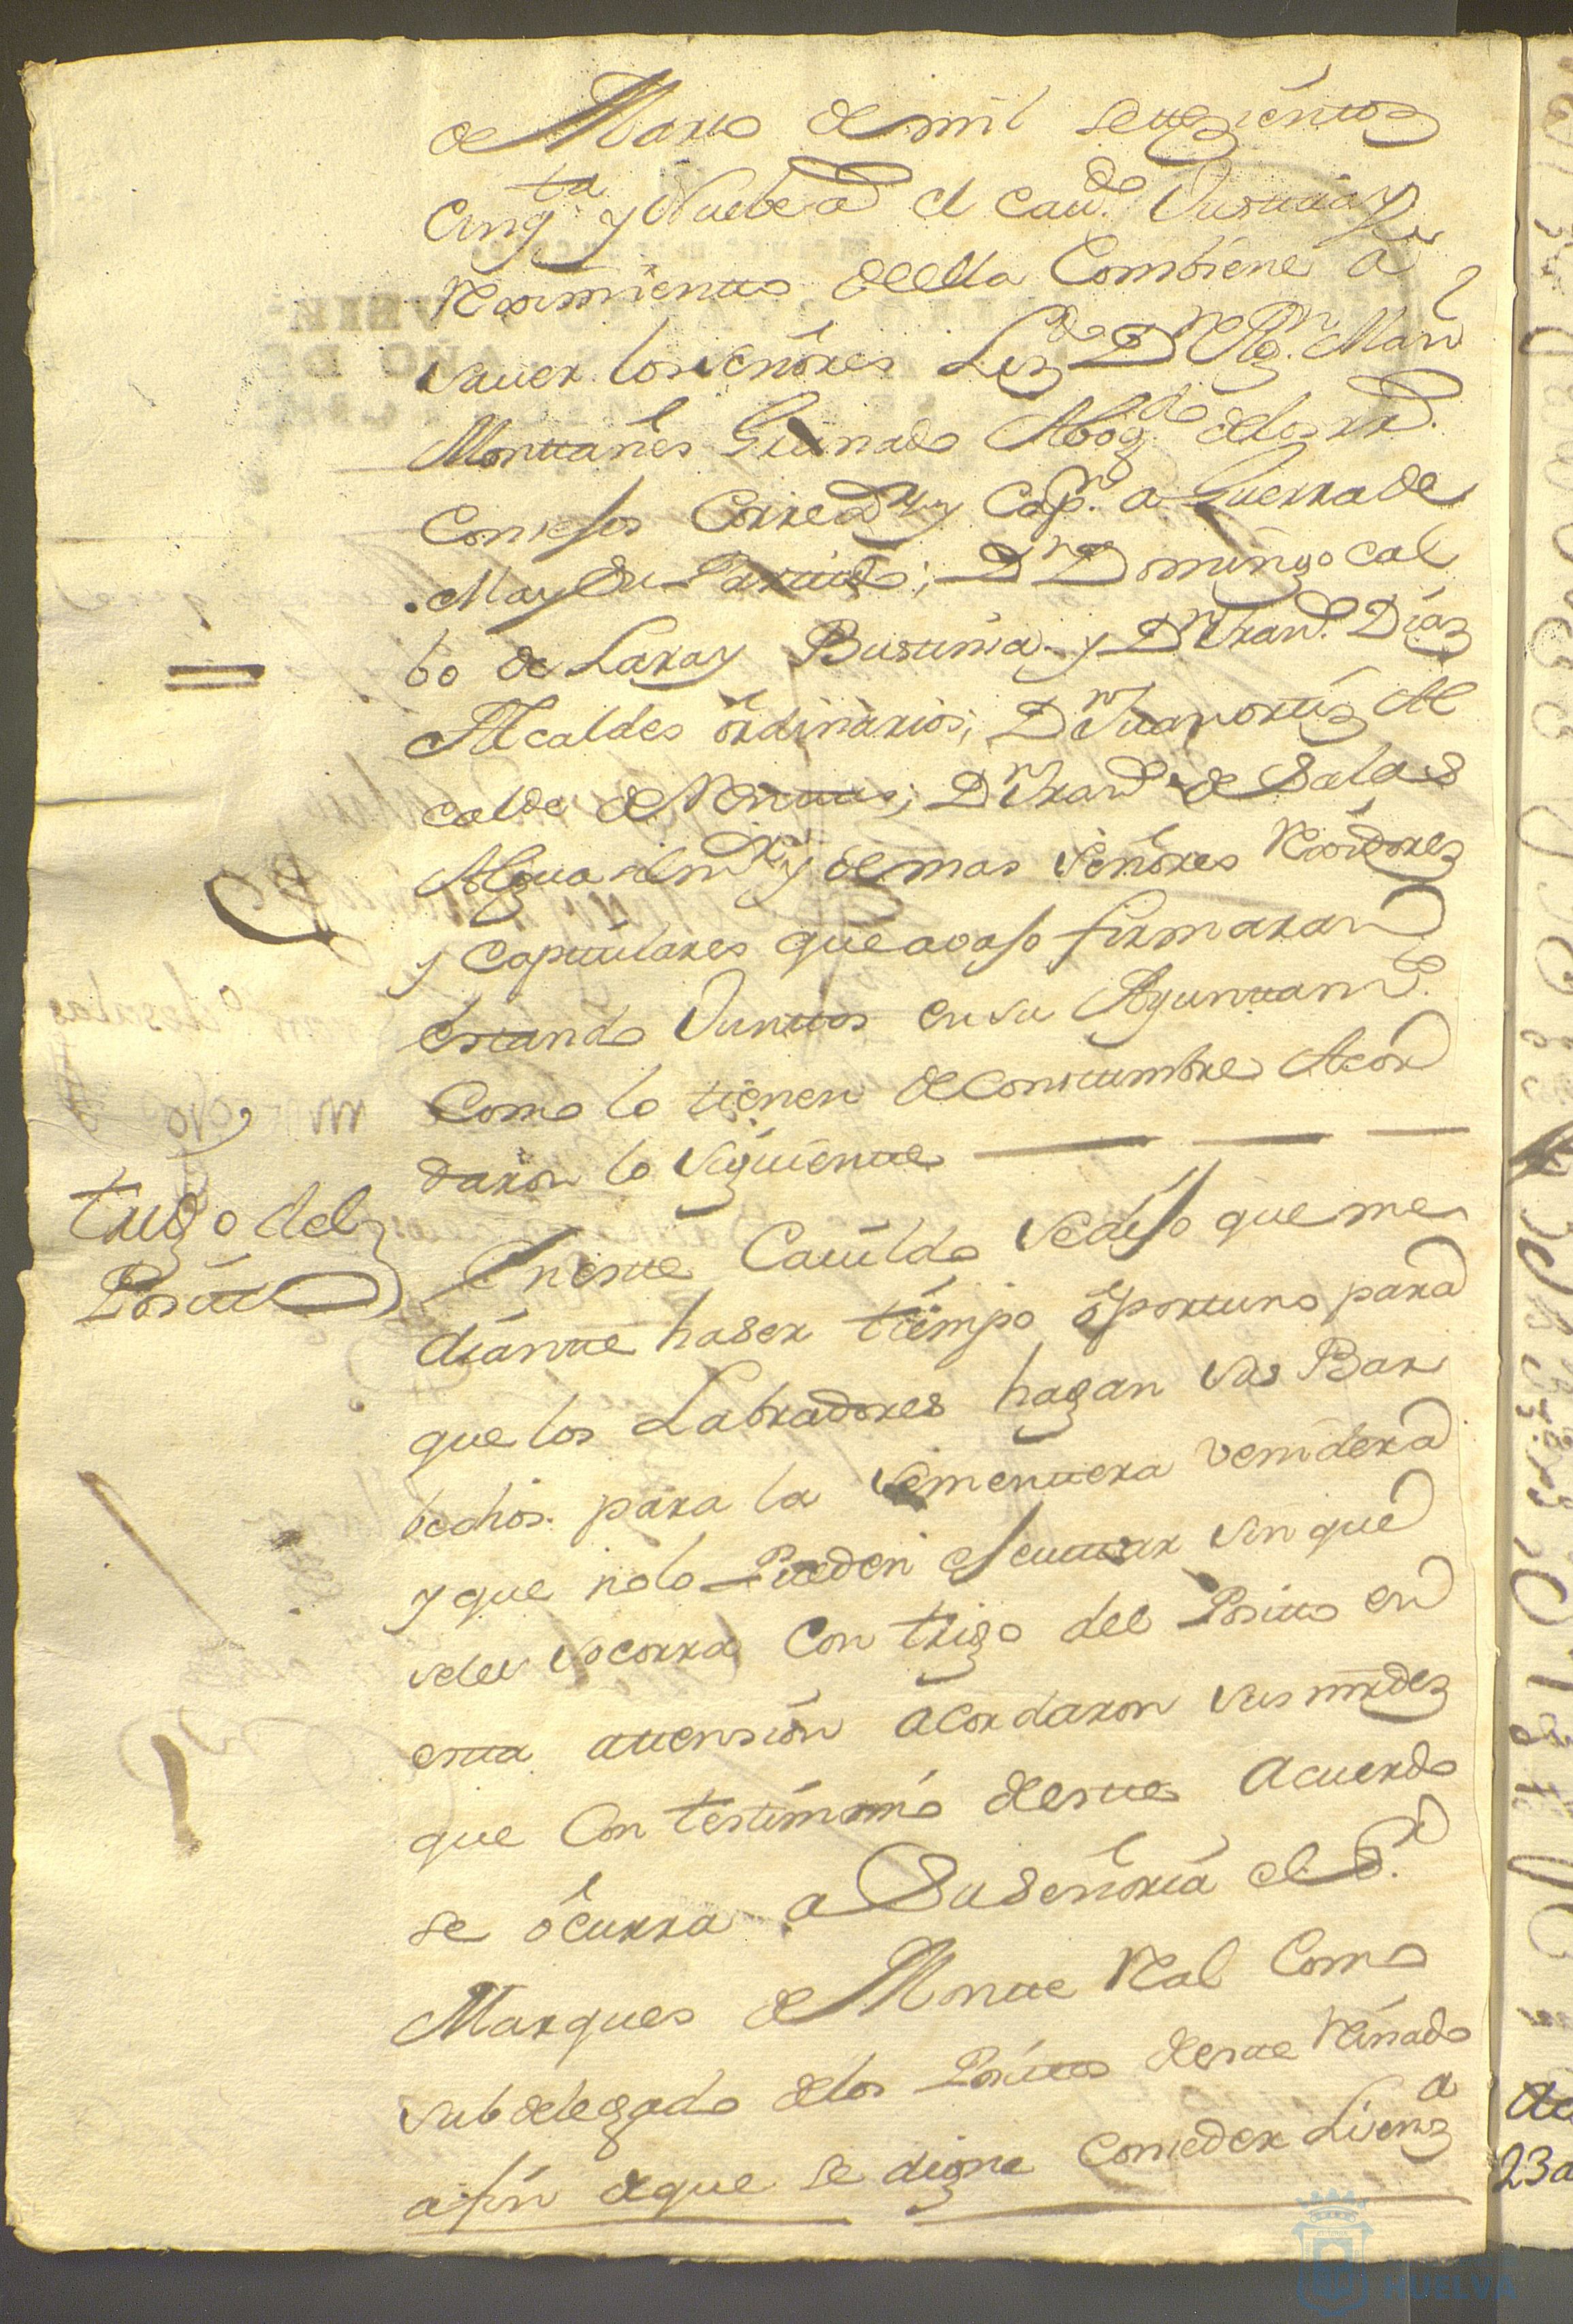 de Marzo de mil setezientos
Cinqta. y Nuebe a el cavdo. Justicia y Re
Reximiento de ella Combiene a
saver los señores Lizdo. Dn. Rgo. Mrn
Montañes Guinado Abogdo. de los rrs.
Consejos Corredr. y Capn. a Guerra de
Mar y su Partido; Dn. Domingo Cal
bo de Lara y Busturia y Dn. Franco. Diaz
Alcaldes ordinarios; Dn. Juan ortiz Al
calde de Millones; Dn. Franco. de Salas
Alguasil mr. y demas señores Rexidores
y Capitulares que avajo firmaran
estando Juntos en su Ayuntamto.
Como lo tienen de Constumbre Acor
daron lo siguiente
trigo del
Posito
En este Cavildo se dijo que me
diante haser tiempo oportuno para
que los Labradores hagan sus Bar
bechos para la sementera venidera
y que no lo Pueden ejecutar sin que
se les socorra Con trigo del Posito en
esta attension acordaron sus mrdes
que Con testimonio de este Acuerdo
se ocurra a Su Señoria el Sr.
Marques de Monte Real Como
subdelegado de los Positos de este Reinado
a fin de que se digne Conceder Lizenza